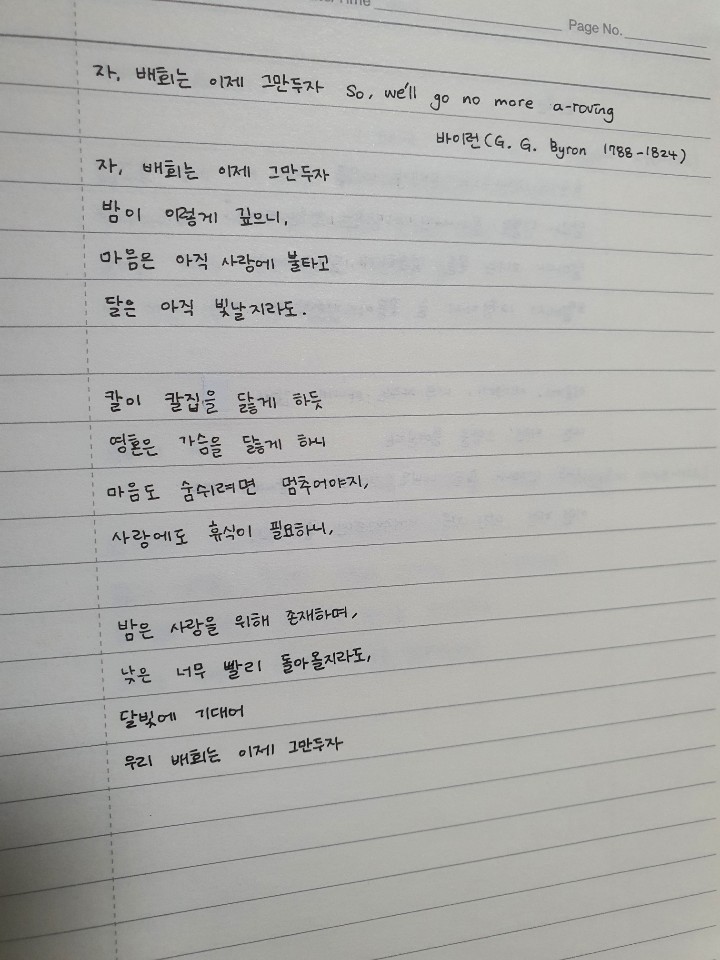 Page No.
자, 배회는 이제 그만두자 So, we'll go no more a-roving
바이런(G. G. Byron 1788-1824)
자, 배회는 이제 그만두자
밤이 이렇게 깊으니,
마음은 아직 사랑에 불타고
달은 아직 빛날지라도.
칼이 칼집을 닳게 하듯
영혼은 가슴을 닳게 하니
마음도 숨쉬려면 멈추어야지,
사랑에도 휴식이 필요하니,
밤은 사랑을 위해 존재하며,
낮은 너무 빨리 돌아올지라도,
달빛에 기대어
우리 배회는 이제 그만두자